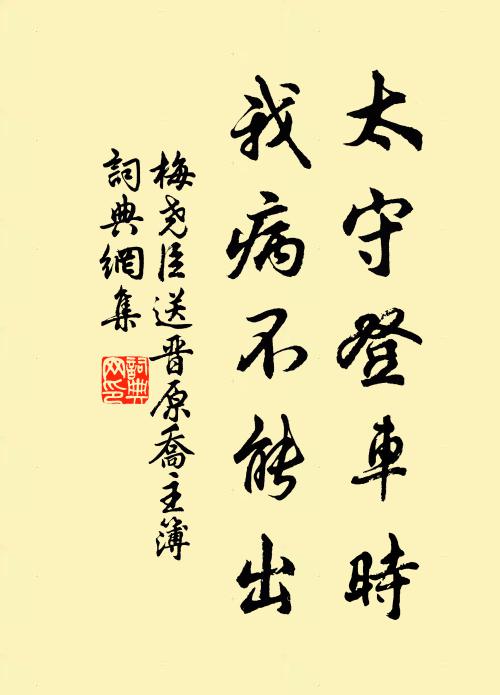 太守登車時
我病不能出
梅堯臣送晋原喬主簿
詞典網集
詞典
网印